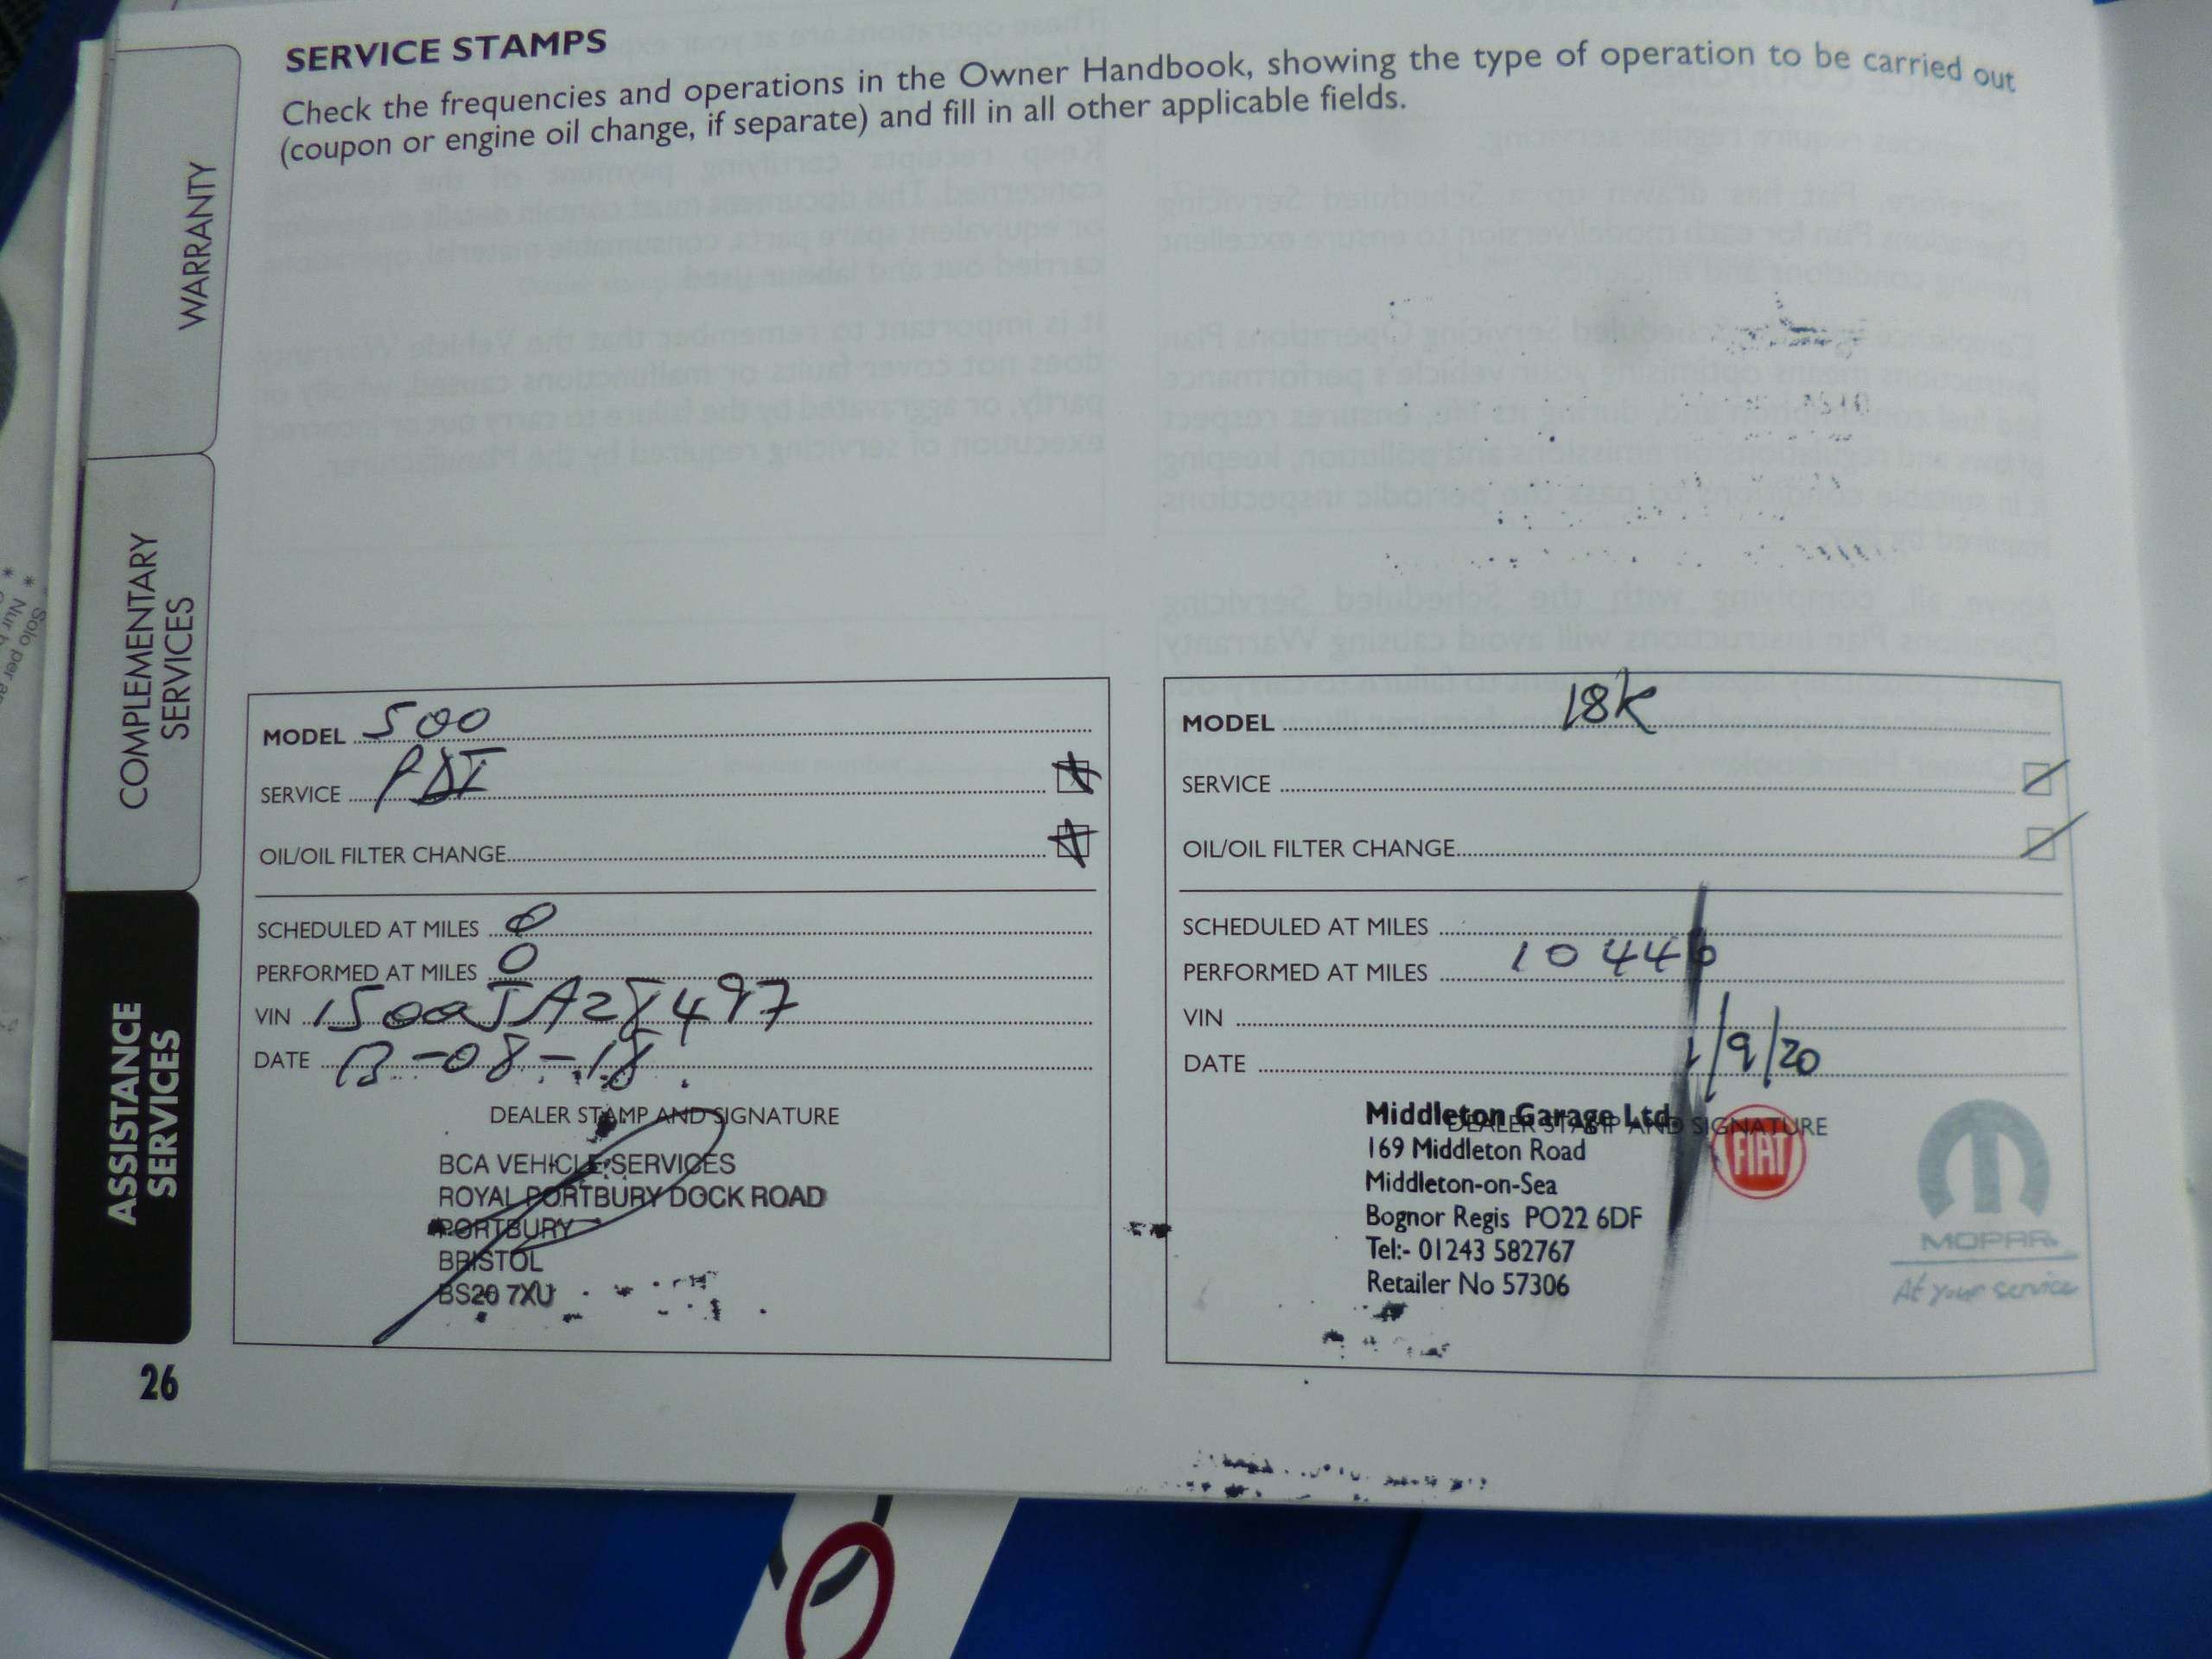 SERVICE STAMPS
Check the frequencies and operations in the Owner Handbook, showing the type of operation to be carried out
(coupon or engine oil change, if separate) and fill in all other applicable fields.
WARRANTY
COMPLEMENTARY
SERVICES
ASSISTANCE
SERVICES
MODEL 500
SERVICE PDI
OIL/OIL FILTER CHANGE
SCHEDULED AT MILES 0
PERFORMED AT MILES 0
VIN
DATE 13-08-18
DEALER STAMP AND SIGNATURE
BCA VEHICLE SERVICES
ROYAL PORTBURY DOCK ROAD
PORTBURY
BRISTOL
BS20 7XU
MODEL 18K
SERVICE
OIL/OIL FILTER CHANGE
SCHEDULED AT MILES
PERFORMED AT MILES 10446
VIN
DATE 1/9/20
DEALER STAMP AND SIGNATURE
Middleton Garage Ltd.
169 Middleton Road
Middleton-on-Sea
Bognor Regis PO22 6DF
Tel:- 01243 582767
Retailer No 57306
FIAT
MOPAR
At your service
26